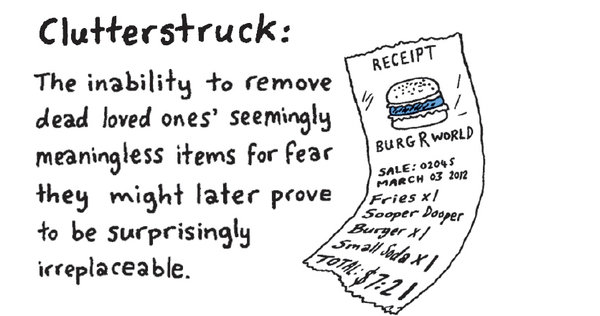 Clutterstruck:
The inability to remove
dead loved ones' seemingly
meaningless items for fear
they might later prove
to be surprisingly
irreplaceable.
RECEIPT
BURGR WORLD
SALE: 02045
MARCH 03 2012
Fries x1
Sooper Dooper
Burger x1
Small Soda x1
TOTAL: $7:21